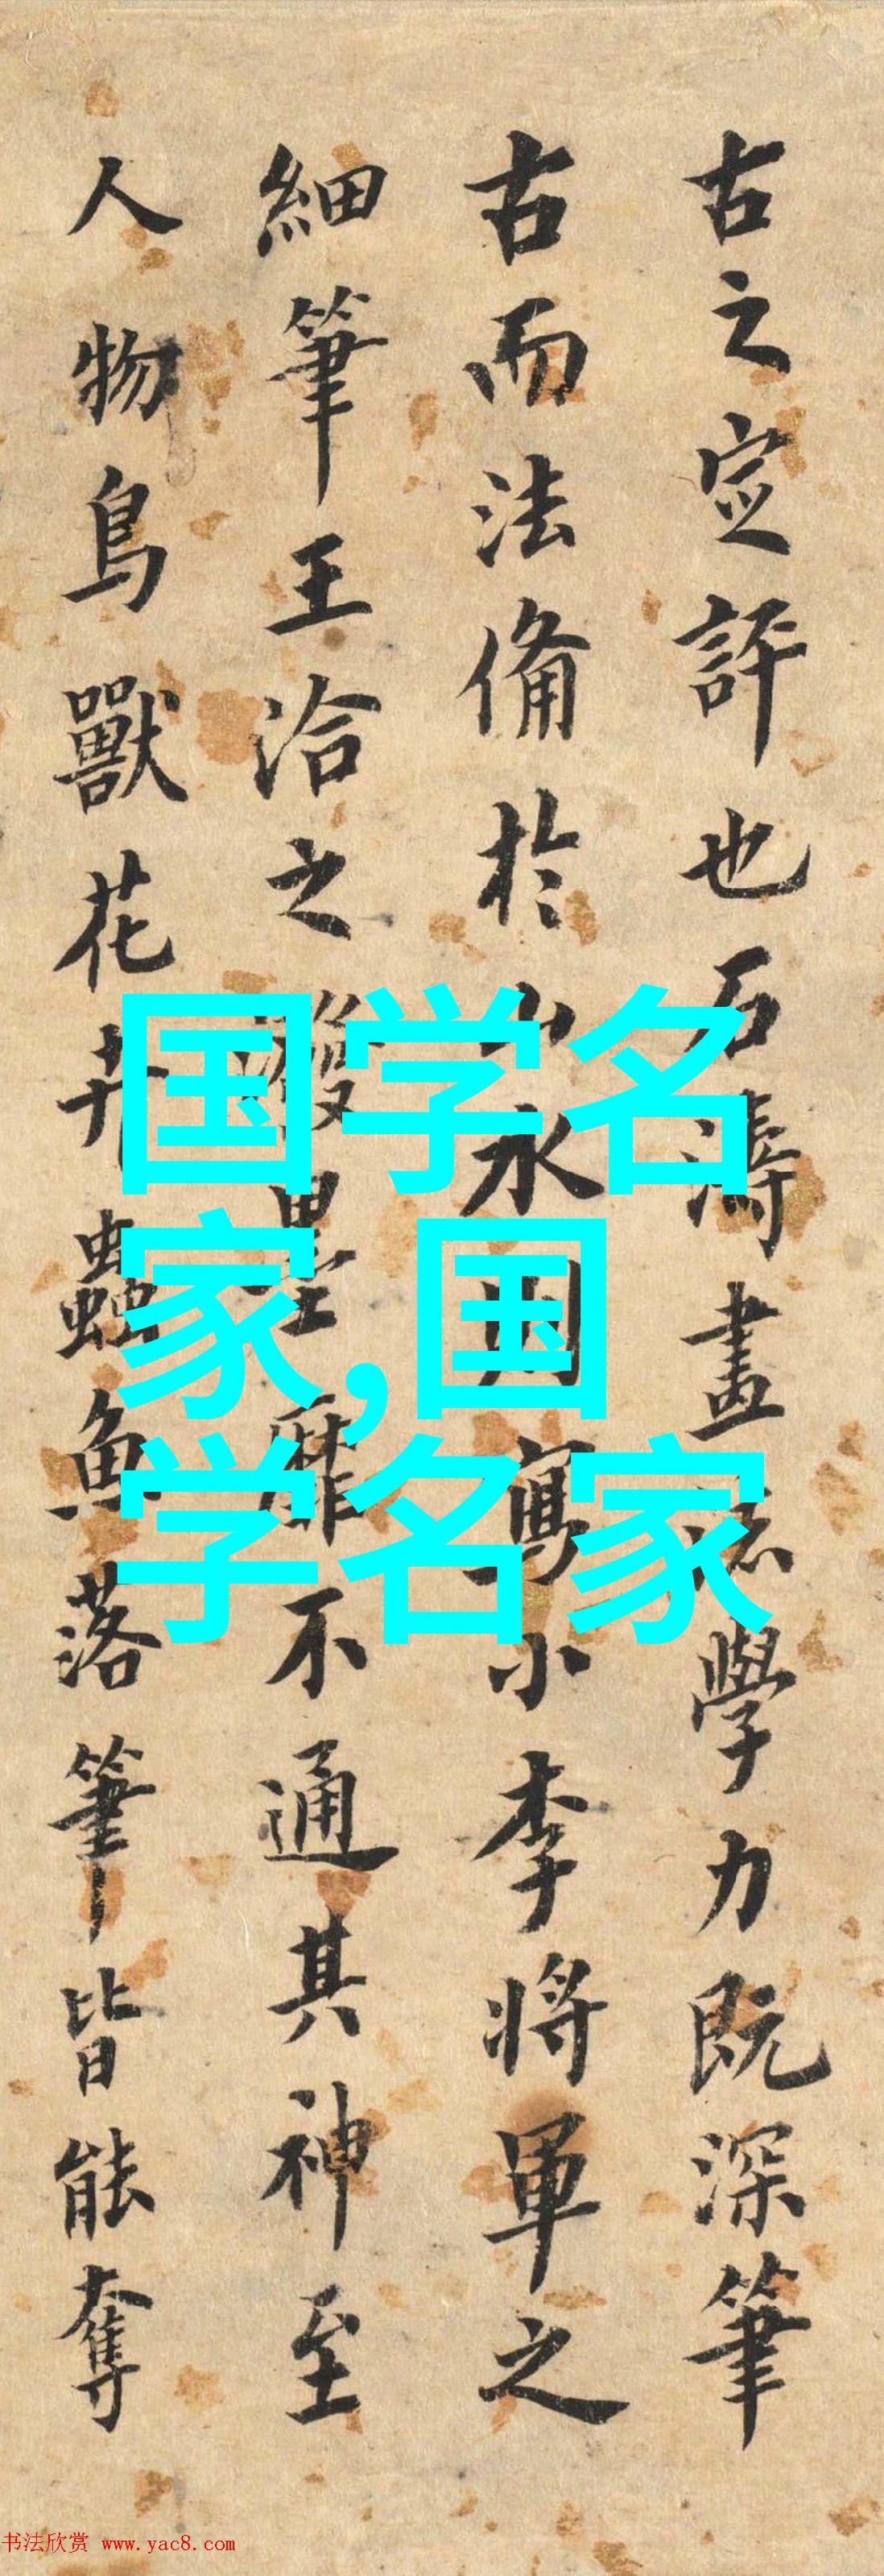 古之定評也石濤畫學力既深筆
古而法備於山水寫小李將軍之
細筆王洽之潑墨靡不通其神至
人物鳥獸花卉蟲魚落筆皆能奪
国学名
家,国
学名家
书法欣赏 www.yac8.com